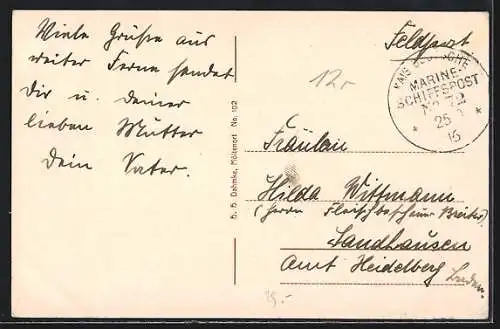 Viele Grüße aus
weiter Ferne sendet
Dir u. deiner
lieben Mutter
Dein Vater.
H. H. Dahmke, Möltenort No. 102
Feldpost.
KAIS. DEUTSCHE
MARINE-
SCHIFFSPOST
No 72
25
16
12,-
Fräulein
Hilda Wittmann
(Herrn Fleischbeschauer Breiter)
Sandhausen
Amt Heidelberg
Baden.
25.-